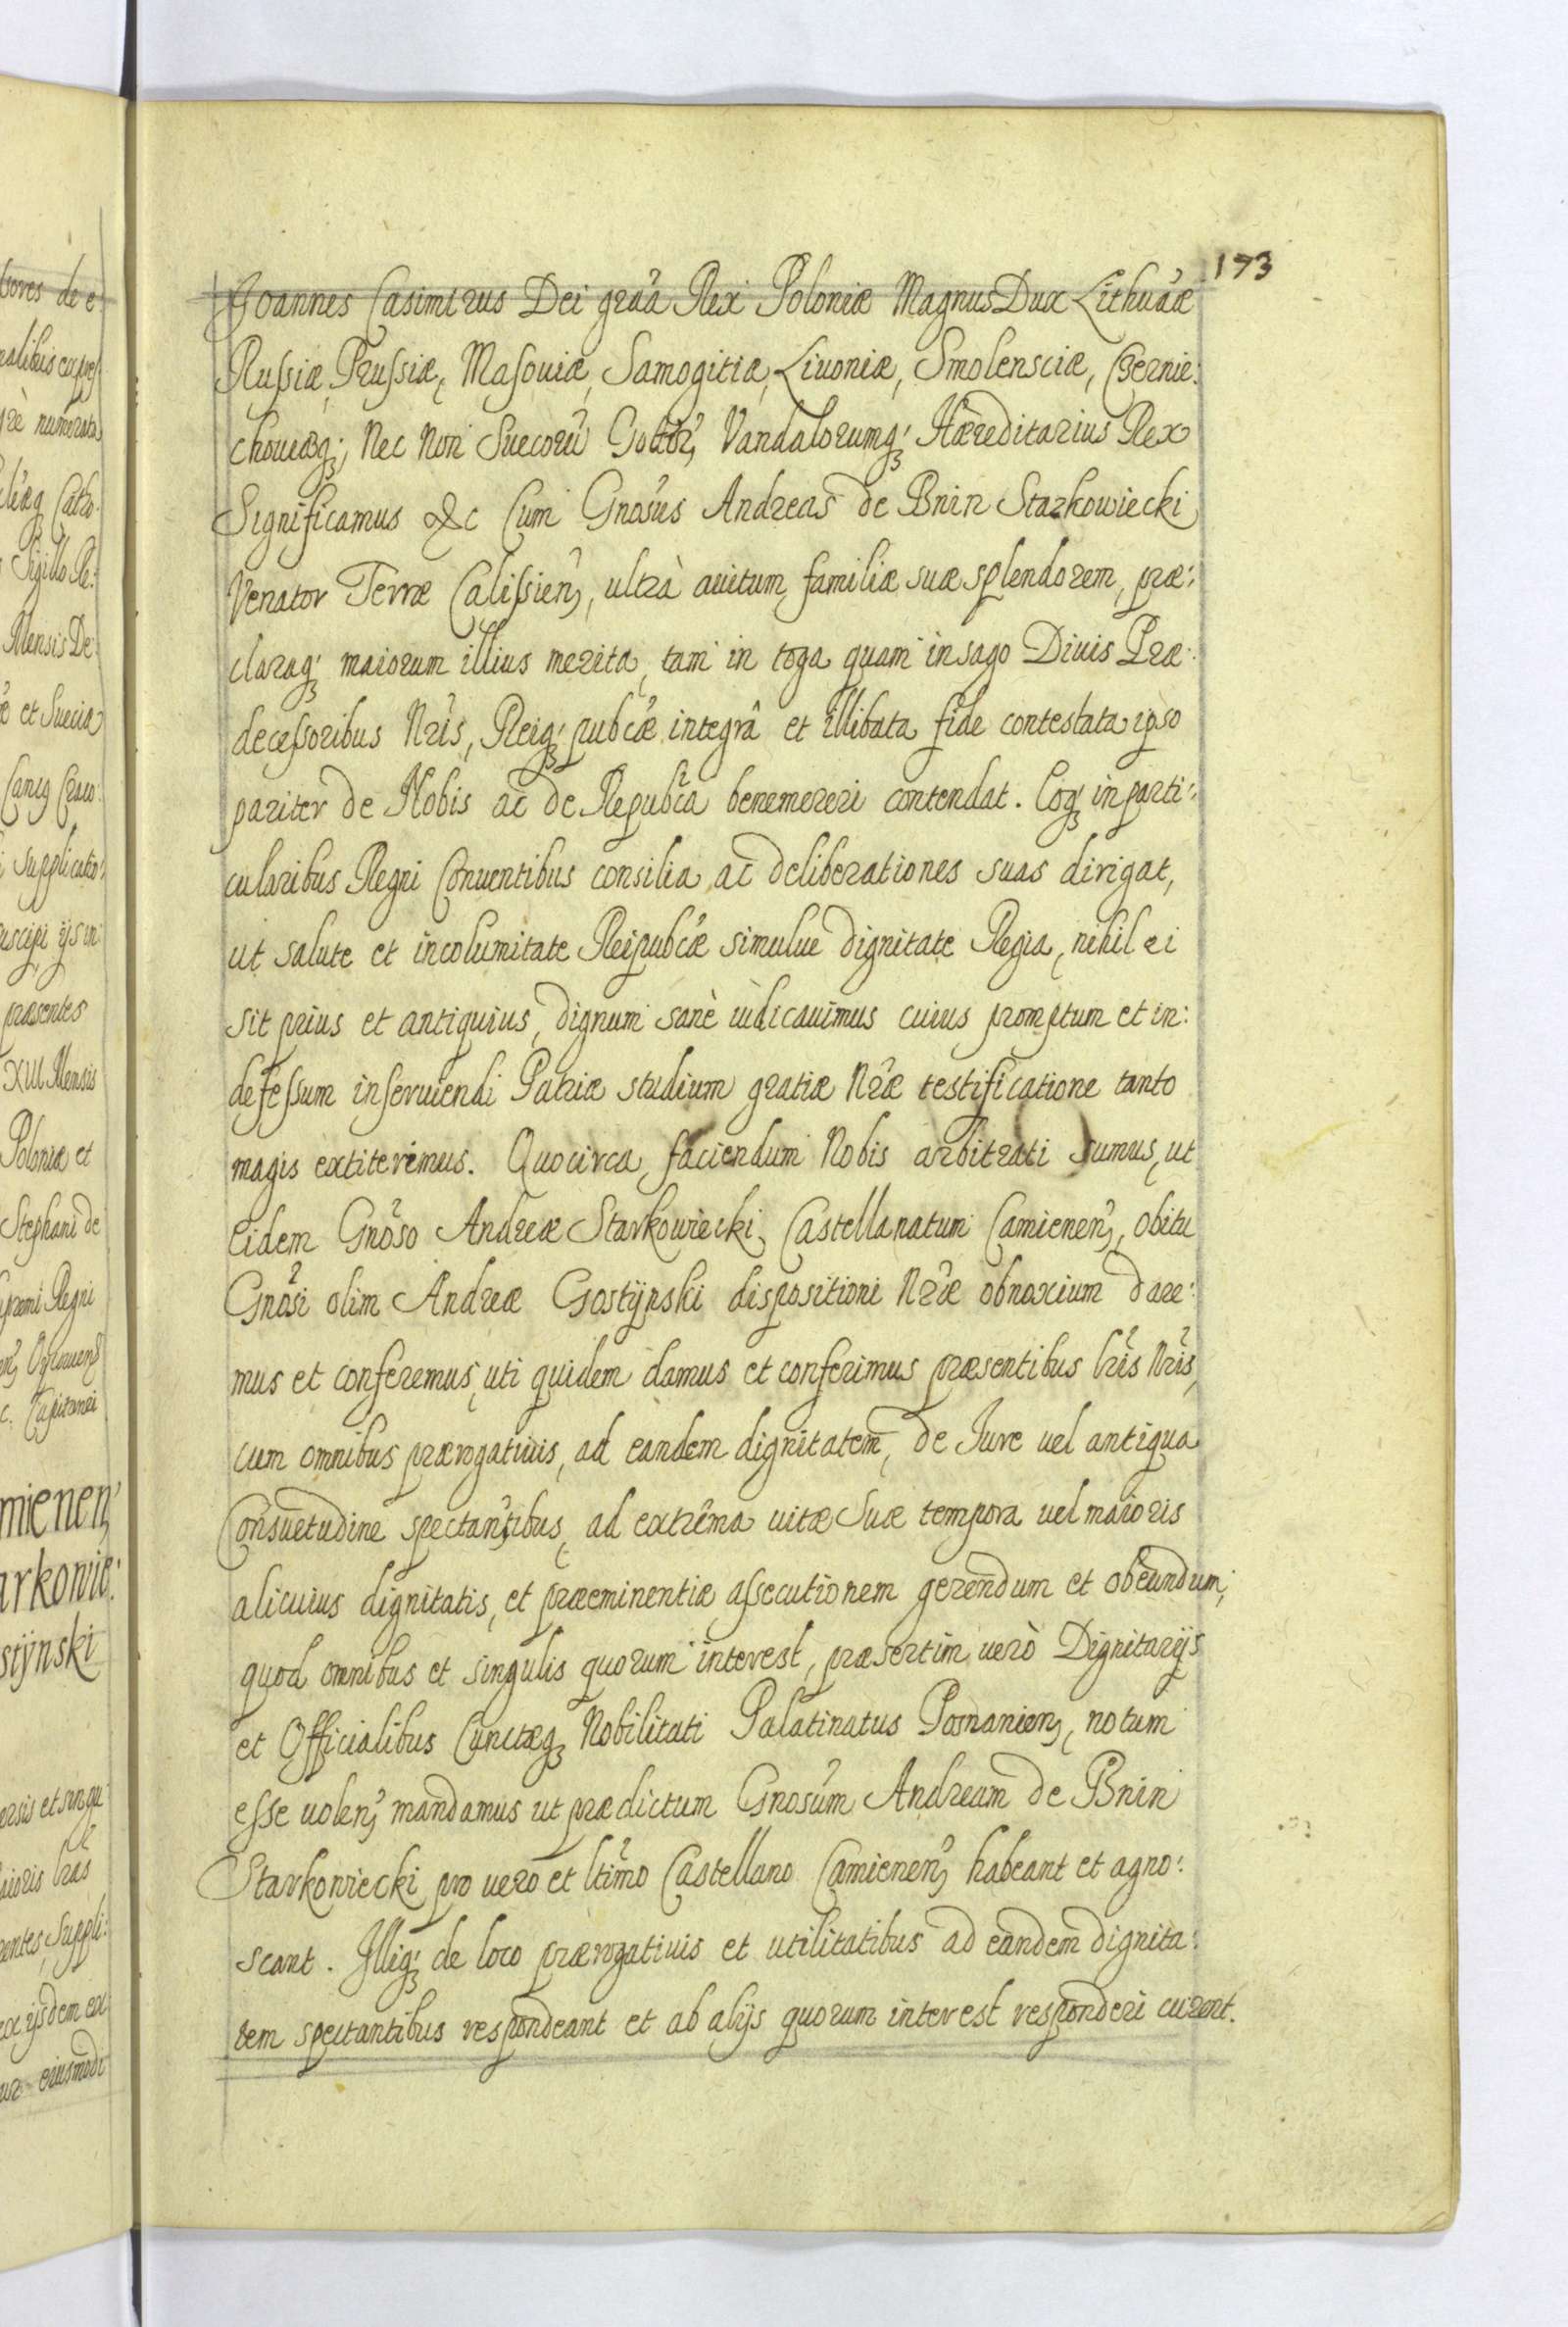 173
Joannes Casimirus Dei gra̓a Rex Poloniæ Magnus Dux Lithua̓æ
Russiæ, Prussiæ, Masouiæ, Samogitiæ, Liuoniæ, Smolensciæ, Czernie:
chouiæq;, Nec Non Suecorū Gottor̓, Vandalorumq; Hæreditarius Rex
Significamus &c Cum Gnosus Andreas de Bnin Starkowiecki
Venator Terræ Calissien̓, ultrà auitum familiæ suæ splendorem, præ:
claraq; maiorum illius merita, tam in toga quam in sago Diuis Præ:
decessoribus Nr̓is, Reiq; pubcæ integrâ et illibata fide contestata ipso
pariter de Nobis ac de Repubca benemereri contendat. Eoq; in parti:
cularibus Regni Conuentibus consilia ac deliberationes suas dirigat,
ut salute et incolumitate Reipubcæ simulue dignitate Regia, nihil ei
sit prius et antiquius, dignum sanè iudicauimus cuius promptum et in:
defessum inseruiendi Patriæ studium gratiæ Nr̓æ testificatione tanto
magis extiterimus. Quocirca faciendum Nobis arbitrati sumus, ut
Eidem Gnoso Andreæ Starkowiecki, Castellanatum Camienen̓, obitu
Gnosi olim Andreæ Gostÿnski dispositioni Nr̓æ obnoxium dare:
mus et conferemus, uti quidem damus et conferimus præsentibus lr̓is Nr̓is,
cum omnibus prærogatiuis, ad eandem dignitatem, de Jure uel antiqua
Consuetudine spectan̓tibus, ad extrêma uitæ suæ tempora uel maioris
alicuius dignitatis, et præeminentiæ assecutionem gerendum et obeundum;
quod omnibus et singulis quorum interest, præsertim uerò Dignitarijs
et Officialibus Cunctæq; Nobilitati Palatinatus Posnanien̓, notum
esse uolen̓ mandamus ut prædictum Gnosum Andream de Bnin
Starkowiecki pro uero et ltimo Castellano Camienen̓ habeant et agno:
scant. Illiq; de loco prærogatiuis et utilitatibus ad eandem dignita:
tem spectantibus respondeant et ab alijs quorum interest responderi curent.